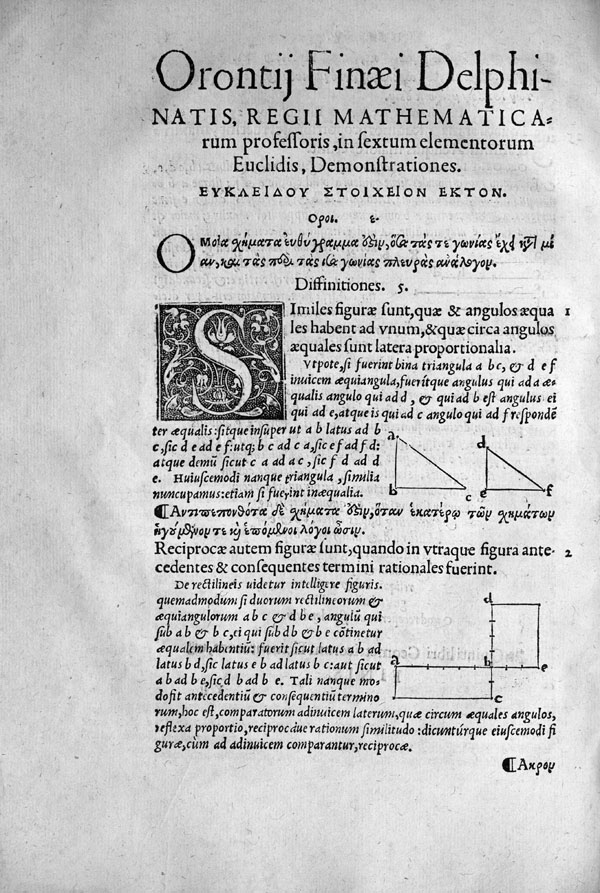 Orontij Finæi Delphi-
NATIS, REGII MATHEMATICA-
rum professoris, in sextum elementorum
Euclidis, Demonstrationes.
ΕΥΚΛΕΙΔΟΥ ΣΤΟΙΧΕΙΟΝ ΕΚΤΟΝ.
Οροι. ε.
Ομοια χήματα ευθύγραμμα ὅϛιν, ὅσα τάς τε γωνίας ἔχ μί
αν, καὶ τὰς πὸι τὰς ἴσας γωνίας πλευρὰς ανάλογον.
Diffinitiones. 5.
Similes figuræ sunt, quæ & angulos æqua 1
les habent ad vnum, & quæ circa angulos
æquales sunt latera proportionalia.
Vtpote, si fuerint bina triangula a b c, & d e f
inuicem æquiangula, fueritque angulus qui ad a æ-
qualis angulo qui ad d, & qui ad b est angulus ei
qui ad e, atque is qui ad c angulo qui ad f respondē
ter æqualis: sitque insuper ut a b latus ad b
c, sic d e ad e f: utq; b c ad c a, sic e f ad f d:
atque demū sicut c a ad a c, sic f d ad d
e. Huiuscemodi nanque triangula, similia
nuncupamus: etiam si fuerint inæqualia.
a
b
c
d
e
f
¶Αντιπεπονθότα δὲ χήματα ὅϛιν, ὅταν ἑκατέρῳ τῶν χημάτων
ἡγούμϟοί τε καὶ ἑπόμϟοι λόγοι ὦσιν.
Reciprocæ autem figuræ sunt, quando in vtraque figura ante- 2
cedentes & consequentes termini rationales fuerint.
De rectilineis uidetur intelligere figuris.
quemadmodum si duorum rectilineorum &
æquiangulorum a b c & d b e, angulū qui
sub a b & b c, ei qui sub d b & b e cōtinetur
æqualem habentiū: fuerit sicut latus a b ad
latus b d, sic latus e b ad latus b c: aut sicut
a b ad b e, sic d b ad b c. Tali nanque mo-
do fit antecedentiū & consequentiū termino
rum, hoc est, comparatorum adinuicem laterum, quæ circum æquales angulos,
reflexa proportio, reciprocáue rationum similitudo: dicuntúrque eiuscemodi fi
guræ, cùm ad adinuicem comparantur, reciprocæ.
d
a
b
e
c
¶Ακρον